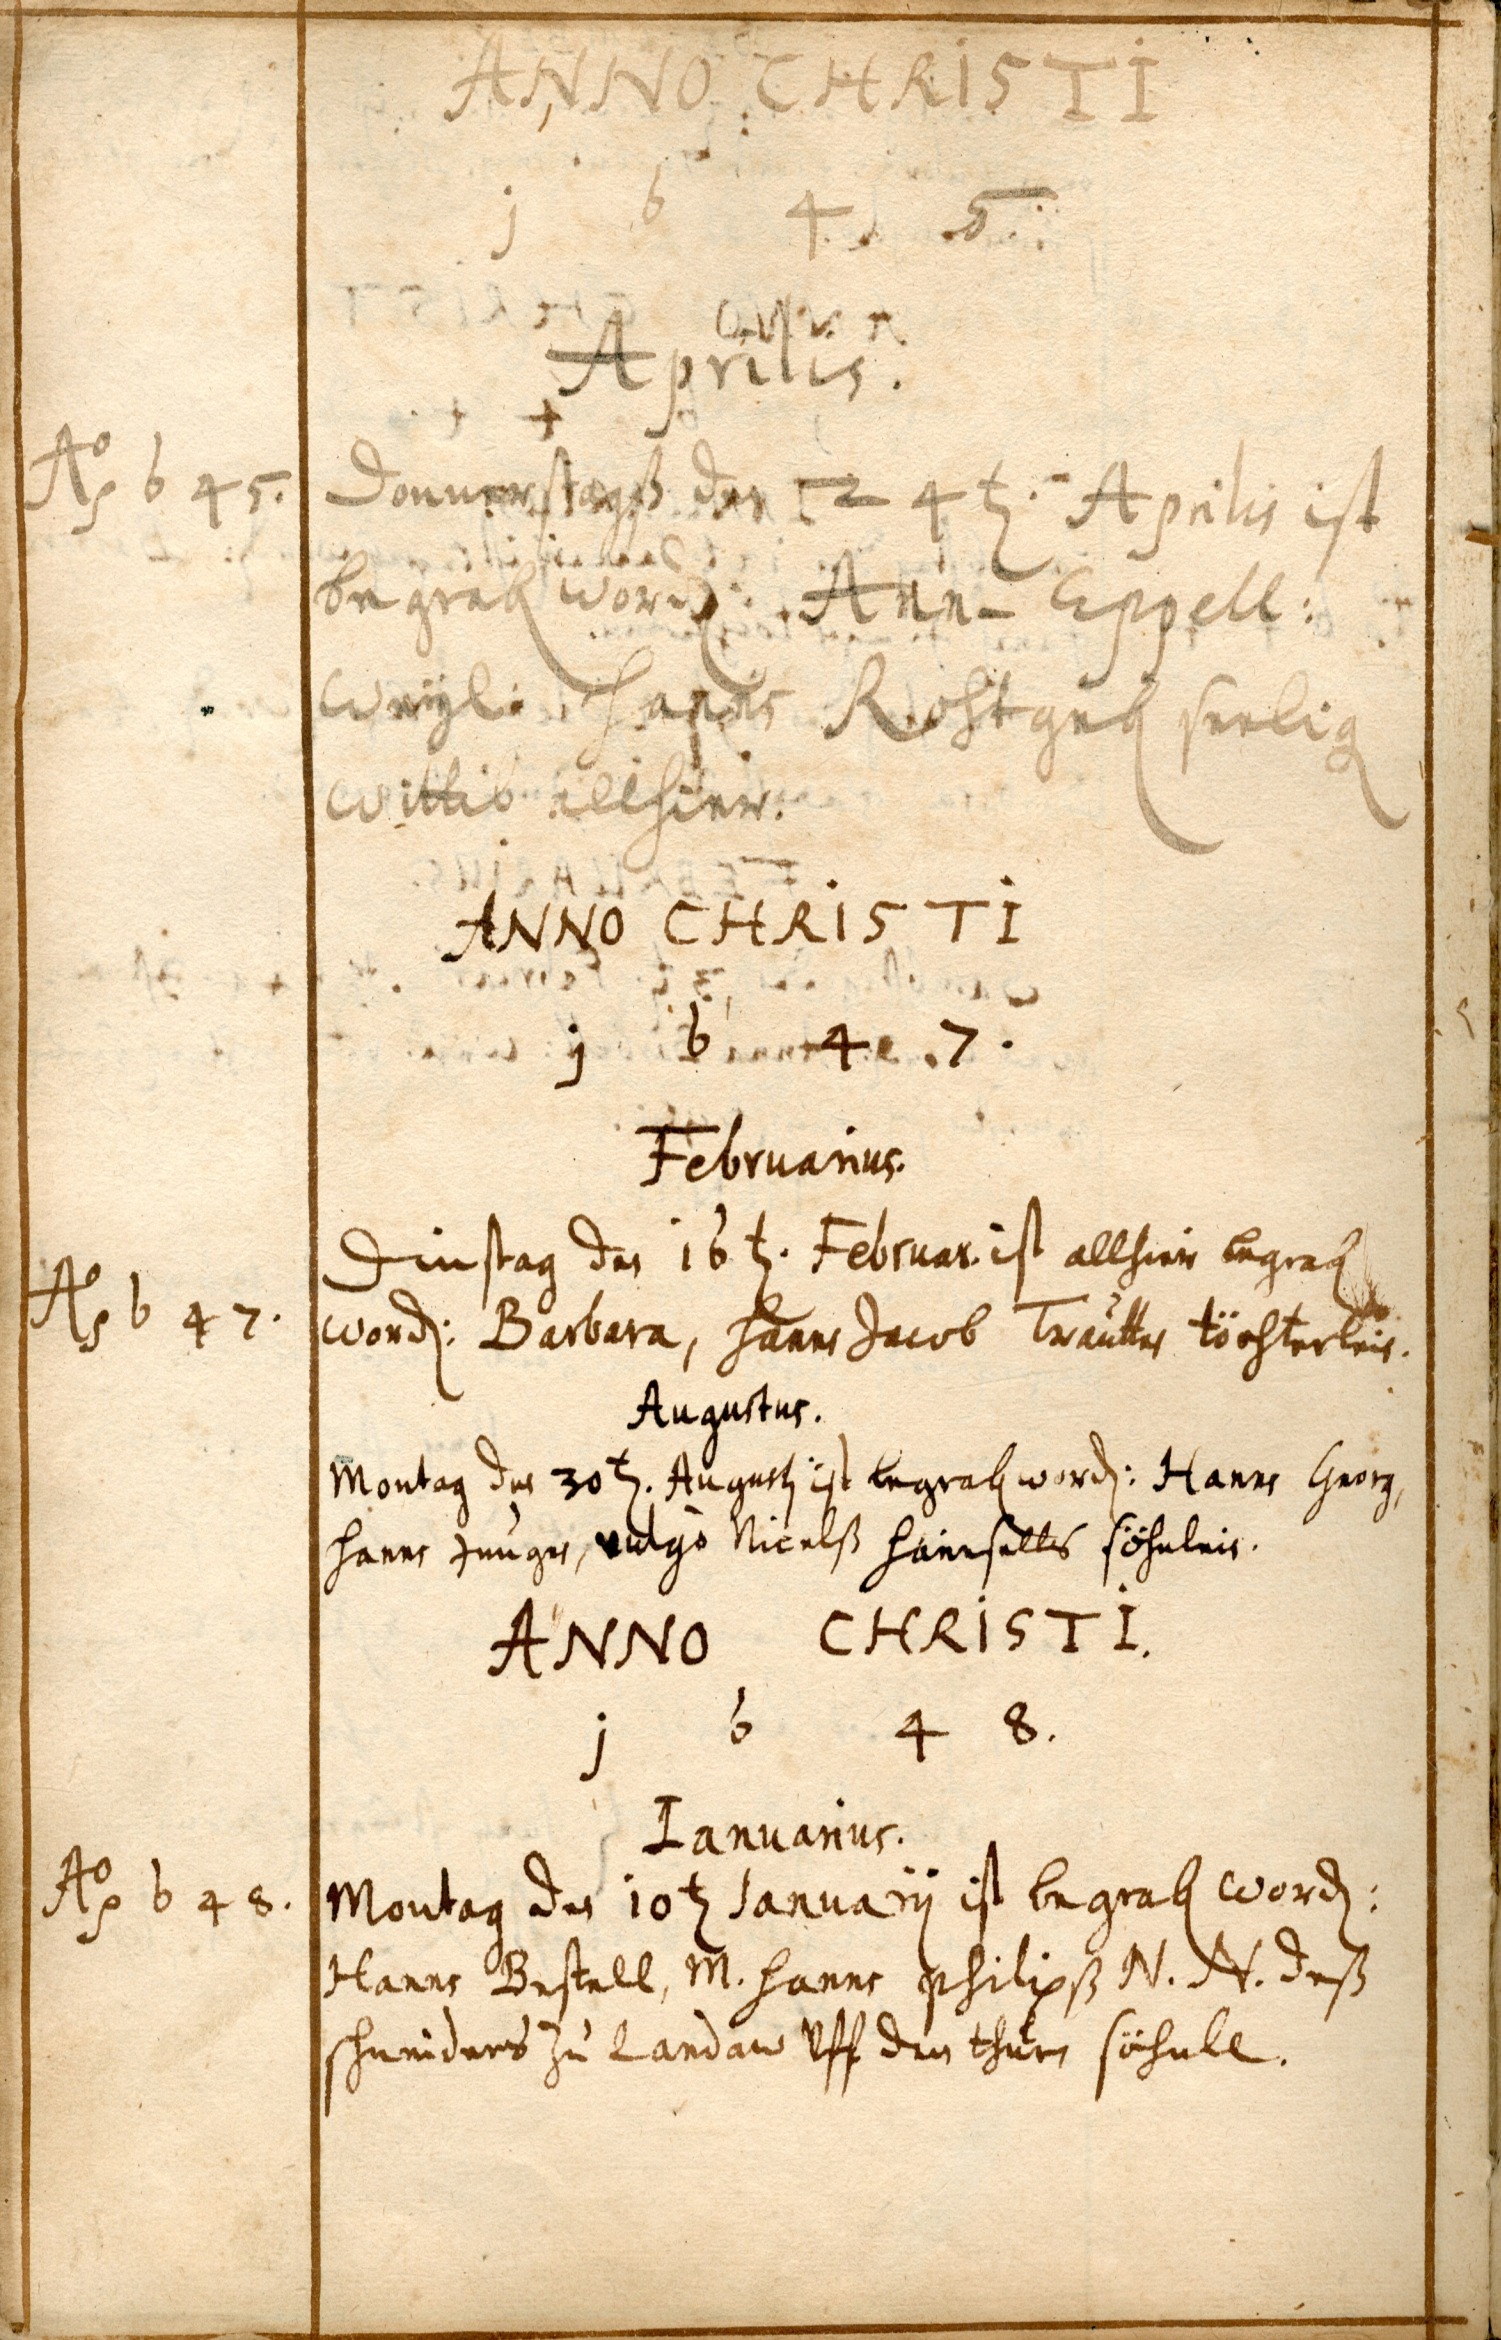 ANNO CHRISTI
j 6 4 5.
Aprilis.
Aō 645. Donnerstagß den 24t. Aprilis ist
begrab word: Ann Appell:
weyl: Hanns Rohtgeb seelig
wittib allhier.
ANNO CHRISTI
j 6 4 7.
Februarius.
Dinstag den 16t. Februar. ist allhier begrab
Aō 647. word: Barbara, Hanns Jacob Trautten töchterlein.
Augustus.
Montag den 30t. Augusti ist begrab word: Hanns Georg,
Hanns Junges, vulgò söhnlein.
ANNO CHRISTI.
j 6 4 8.
Ianuarius.
Aō 648. Montag den 10t Januarij ist begrab word:
Hanns Bestell, M. Hanns Philipß N. N. deß
schneiders zu Landaw Uff den thurn söhnle.